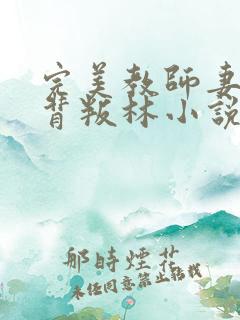 完美教師妻
背叛林小說
那時煙花
未任同意禁止轉載